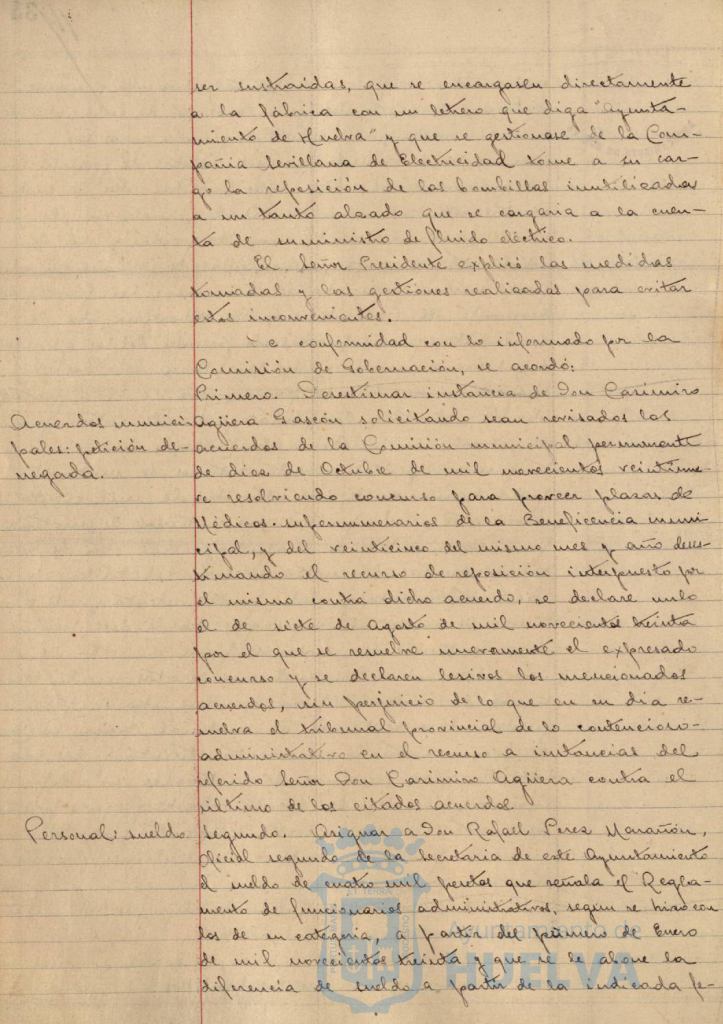 ser sustraidas, que se encargasen directamente
a la fábrica con un letrero que diga "Ayunta-
miento de Huelva" y que se gestionase de la Com-
pañia Sevillana de Electricidad tome a su car-
go la reposición de las bombillas inutilizadas
a un tanto alzado que se cargaria a la cuen-
ta de suministro de fluido eléctrico.
El Señor Presidente explicó las medidas
tomadas y las gestiones realizadas para evitar
estos inconvenientes.
De conformidad con lo informado por la
Comisión de Gobernación, se acordó:
Primero. Desestimar instancia de Don Casimiro
Acuerdos munici-
pales: petición de-
negada.
Agüera Gascón solicitando sean revisados los
acuerdos de la Comisión municipal permanente
de diez de Octubre de mil novecientos veintinue-
ve resolviendo concurso para proveer plazas de
Médicos supernumerarios de la Beneficencia muni-
cipal, y del veinticinco del mismo mes y año deses-
timando el recurso de reposición interpuesto por
el mismo contra dicho acuerdo, se declare nulo
el de siete de Agosto de mil novecientos treinta
por el que se resuelve nuevamente el expresado
concurso y se declaren lesivos los mencionados
acuerdos, sin perjuicio de lo que en su dia re-
suelva el tribunal provincial de lo contencioso-
administrativo en el recurso a instancias del
referido Señor Don Casimiro Agüera contra el
último de los citados acuerdos.
Personal: sueldo
Segundo. Asignar a Don Rafael Perez Marañón,
Oficial segundo de la Secretaria de este Ayuntamiento
el sueldo de cuatro mil pesetas que señala el Regla-
mento de funcionarios administrativos, segun se hizo con
los de su categoria, a partir del primero de Enero
de mil novecientos treinta y que se le abone la
diferencia de sueldo a partir de la indicada fe-
Ayuntamiento de
HUELVA